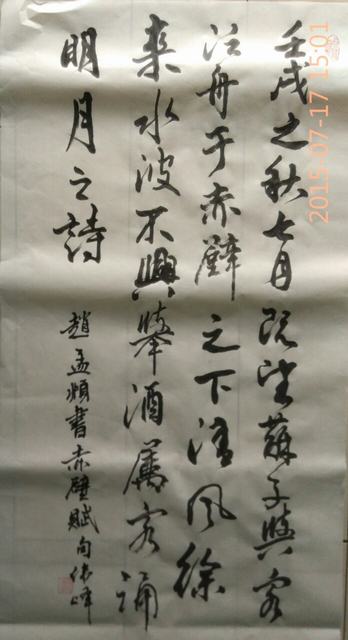 壬戌之秋七月既望蘇子與客
泛舟于赤壁之下清風徐
来水波不興舉酒屬客誦
明月之詩
趙孟頫書赤壁賦句
2015-07-17 15:01